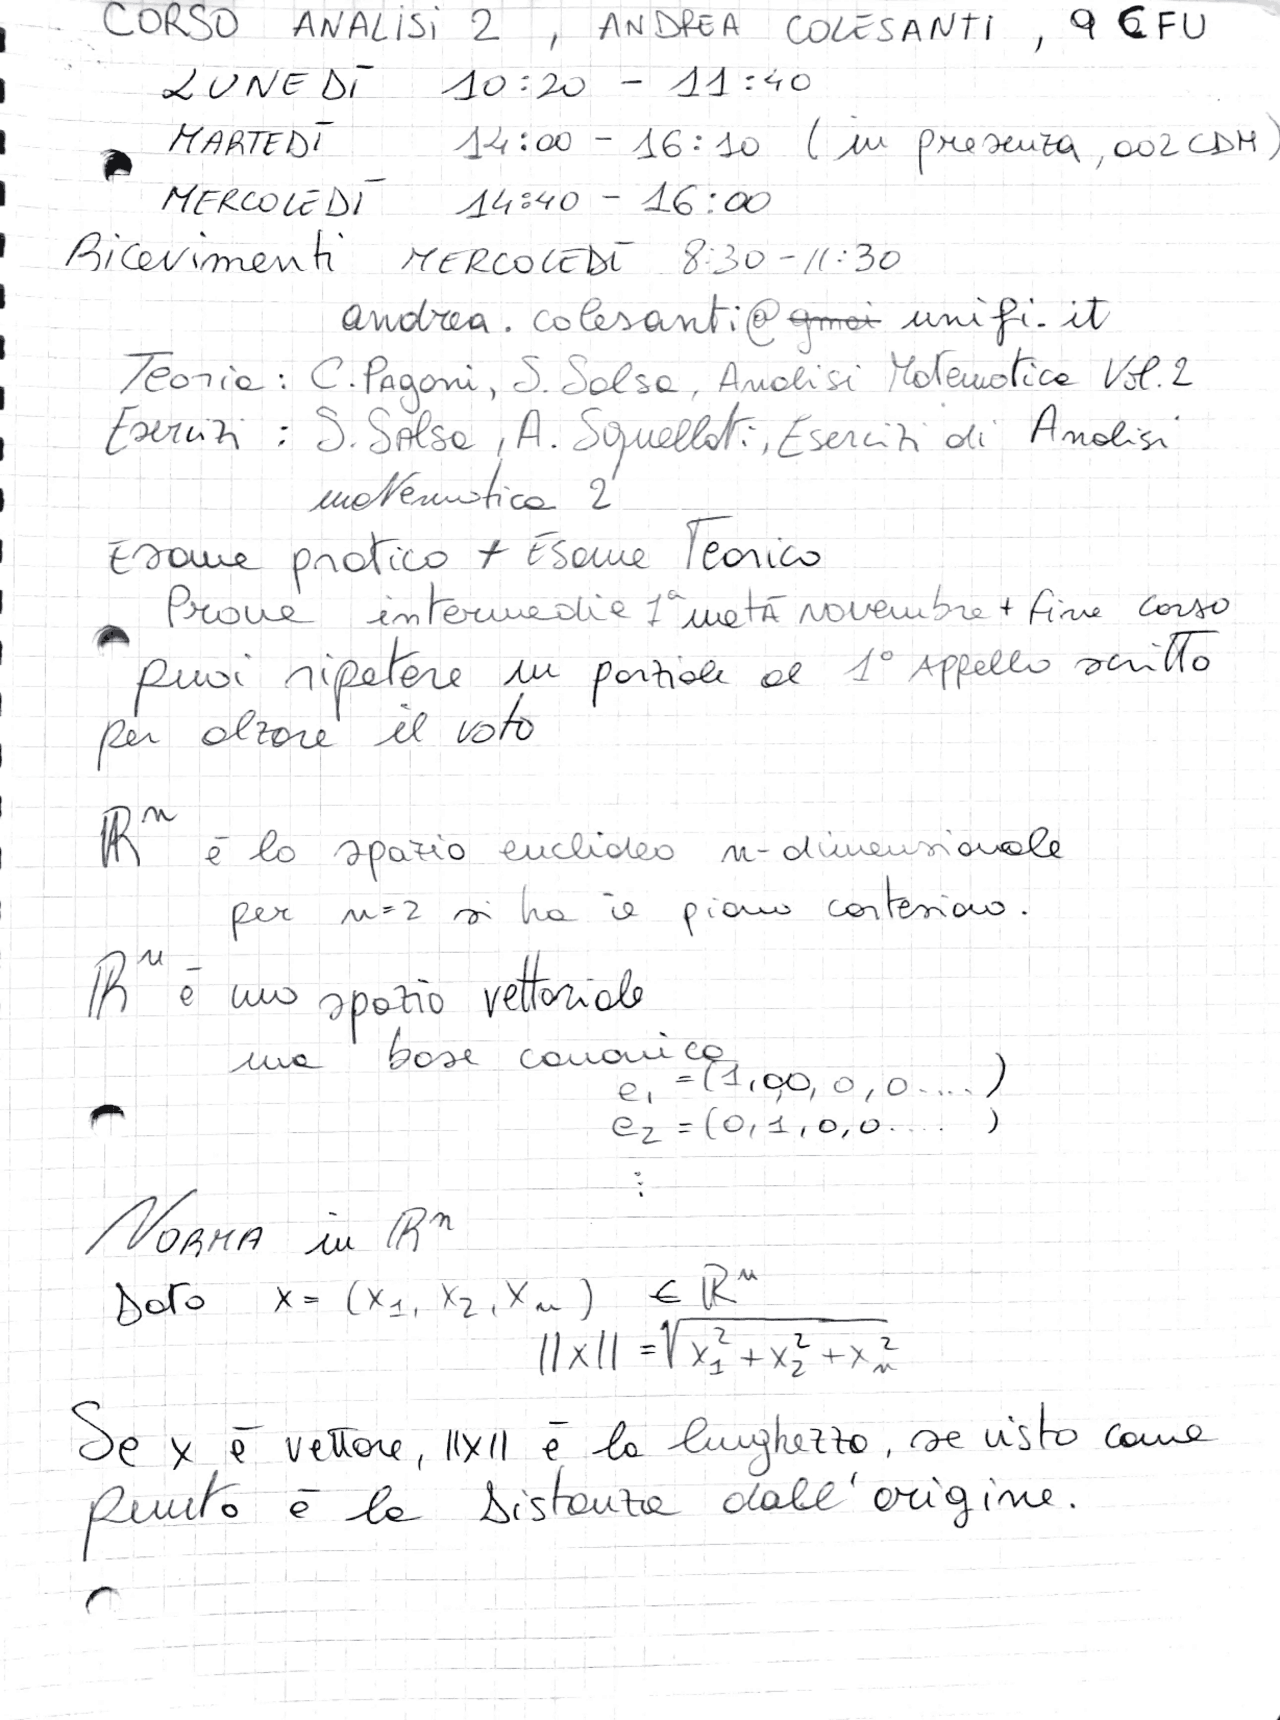 CORSO ANALISI 2, ANDREA COLESANTI, 9 CFU
LUNEDÌ 10:20 - 11:40
MARTEDÌ 14:00 - 16:10 (in presenza, 002 CDM)
MERCOLEDÌ 14:40 - 16:00
Ricevimenti MERCOLEDÌ 8:30-11:30
andrea.colesanti@ gmai unifi.it
Teoria: C. Pagani, S. Salsa, Analisi Matematica Vol. 2
Esercizi: S. Salsa, A. Squellati, Esercizi di Analisi
matematica 2
Esame pratico + Esame Teorico
Prove intermedie 1ª metà novembre + fine corso
puoi ripetere un parziale al 1° Appello scritto
per alzare il voto
ℝⁿ è lo spazio euclideo n-dimensionale
per n=2 si ha il piano cartesiano.
ℝⁿ è uno spazio vettoriale
una base canonica
e₁ = (1,00,0,0....)
e₂ = (0,1,0,0.... )
⋮
NORMA in ℝⁿ
Dato x = (x₁, x₂, xₙ) ∈ ℝⁿ
||x|| = √(x₁² + x₂² + xₙ²)
Se x è vettore, ||x|| è la lunghezza, se visto come
punto è la Distanza dall'origine.